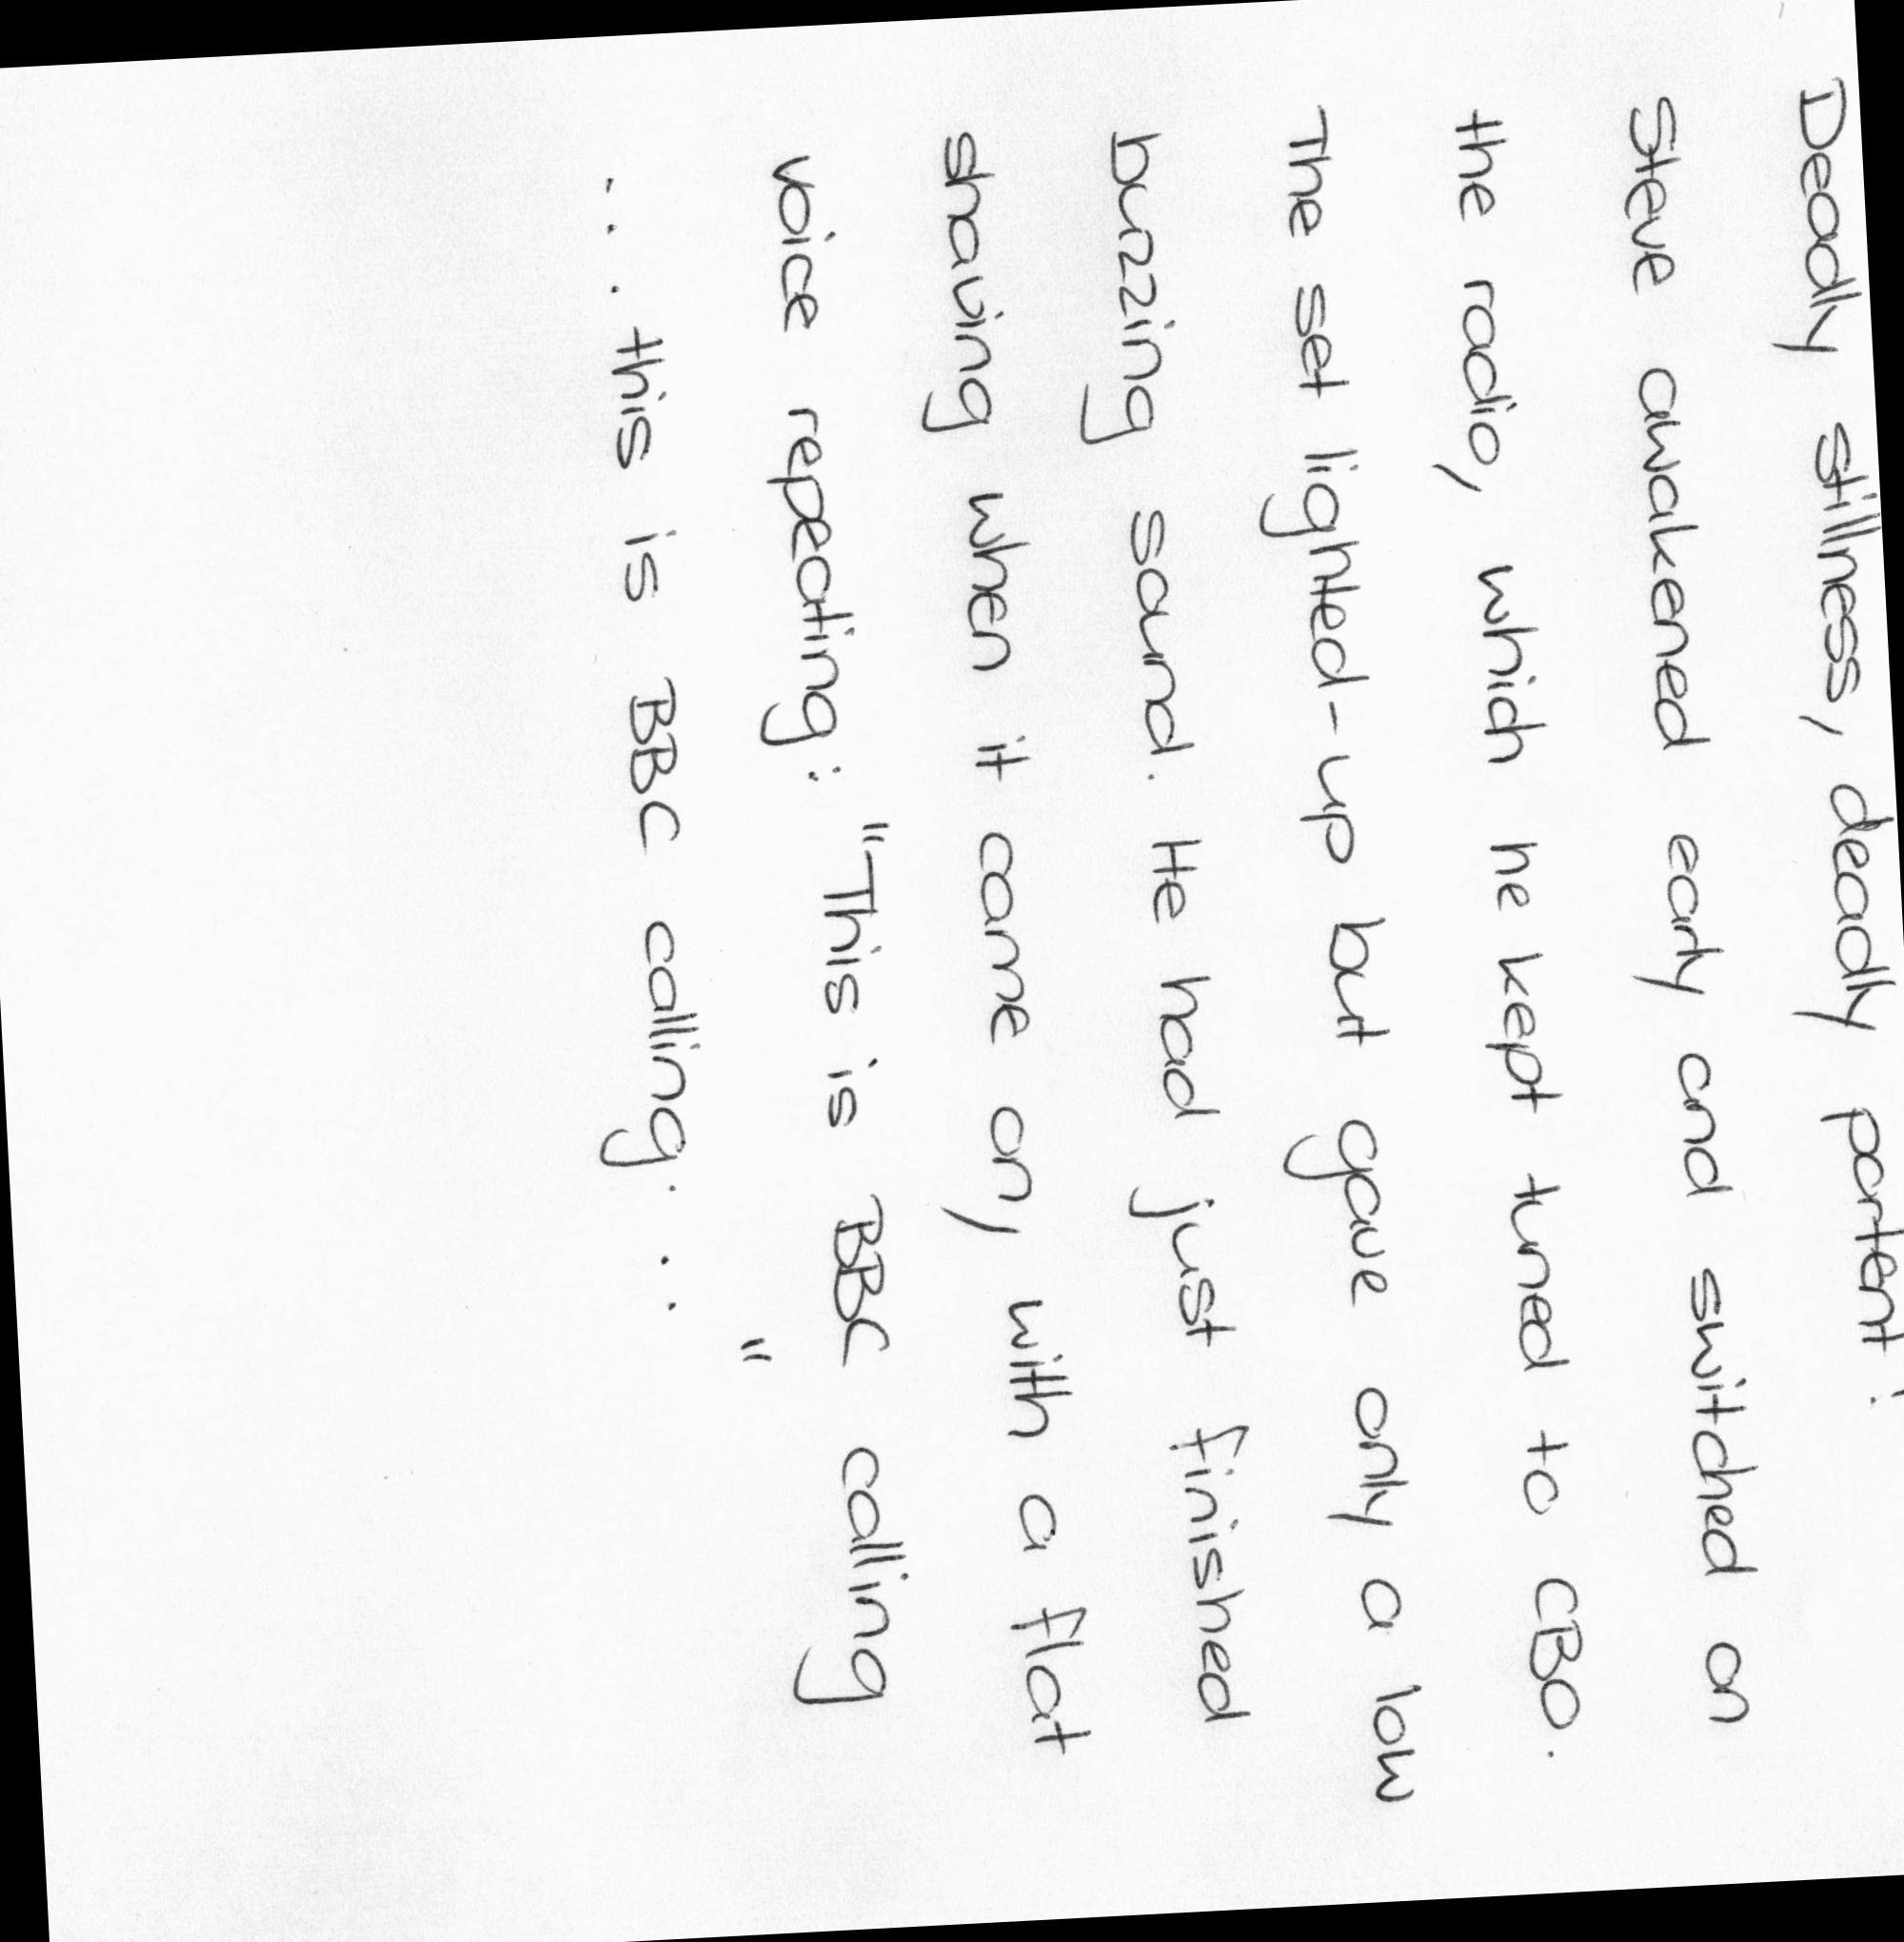 Deadly stillness, deadly portent!
Steve awakened early and switched on
the radio, which he kept tuned to CBO.
The set lighted-up but gave only a low
buzzing sound. He had just finished
shaving when it came on, with a flat
voice repeating: "This is BBC calling
... this is BBC calling... "